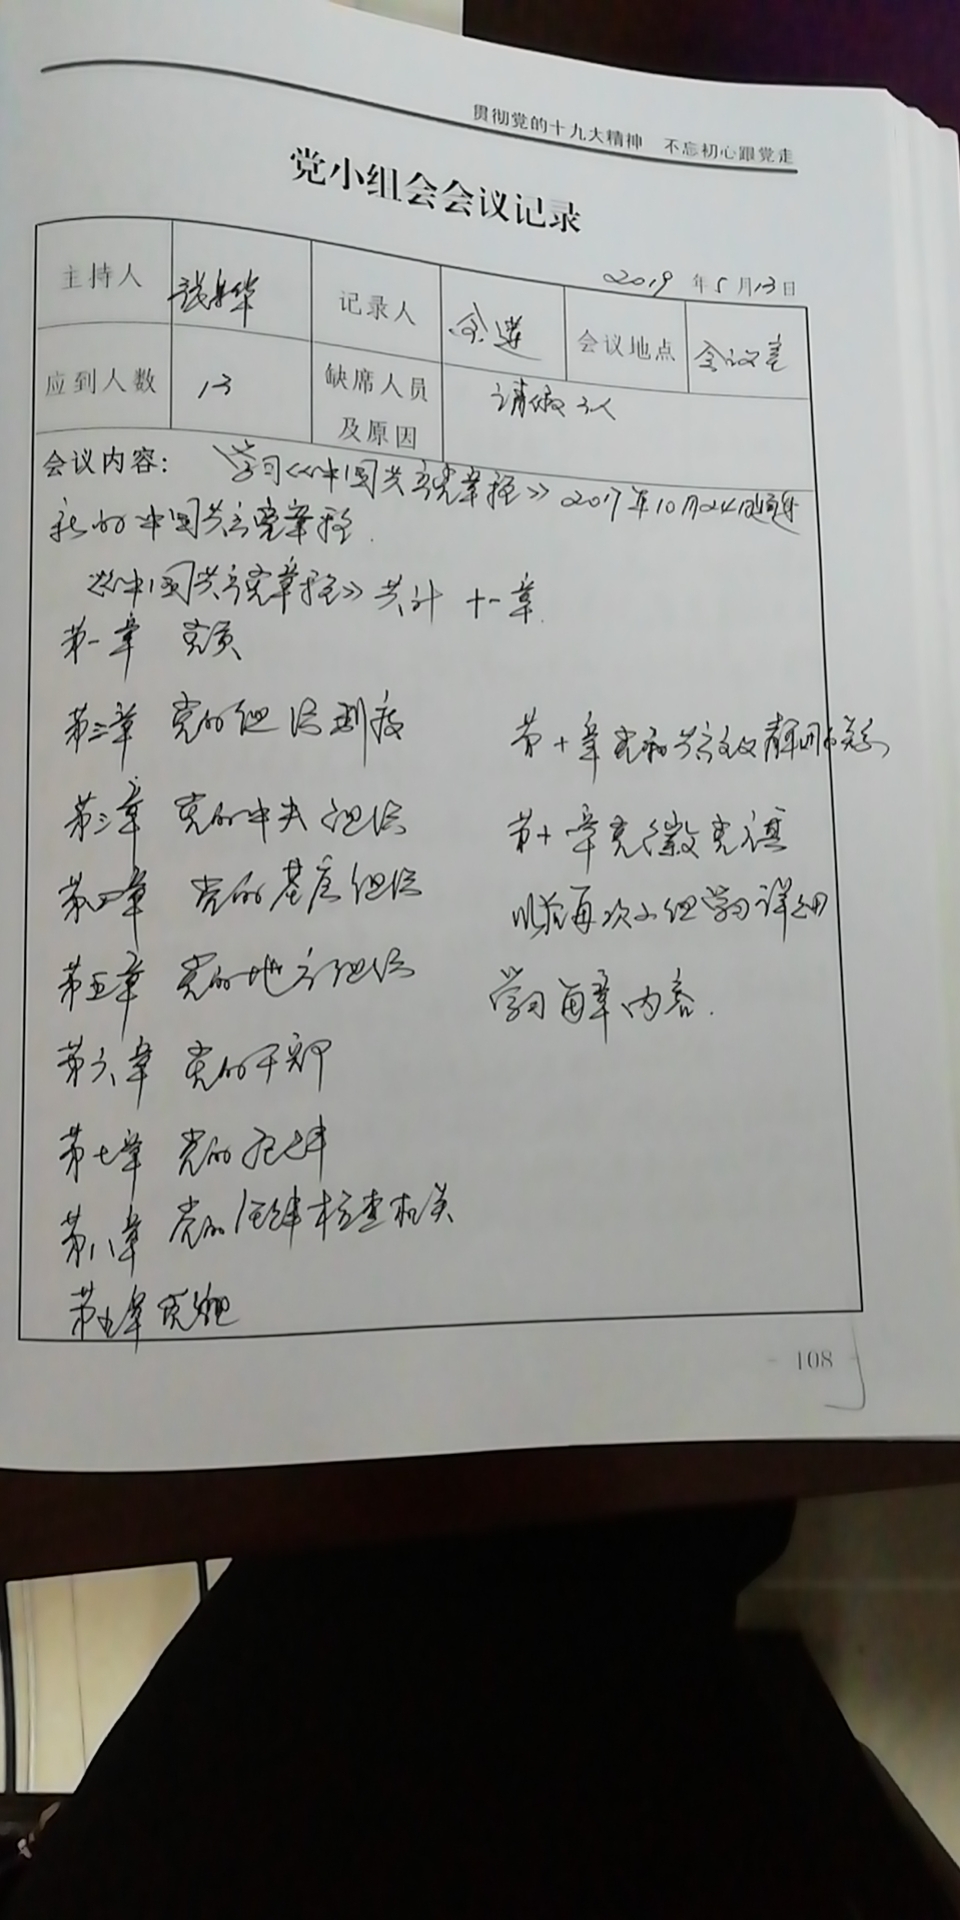 贯彻党的十九大精神 不忘初心跟党走
党小组会会议记录
2019年5月13日
主持人 华 记录人 会议地点 会议室
应到人数 13 缺席人员及原因 请假3人
会议内容: 学习《中国共产党章程》2017年10月24日通过
新的中国共产党章程.
《中国共产党章程》共计 十一章.
第一章 党员
第二章 党的组织制度
第三章 党的中央组织
第四章 党的基层组织
第五章 党的地方组织
第六章 党的干部
第七章 党的纪律
第八章 党的纪律检查机关
第九章 党组
第十章 党和共产主义青年团的关系
第十章 党徽党旗
以后每次小组学习详细
学习每章内容.
108